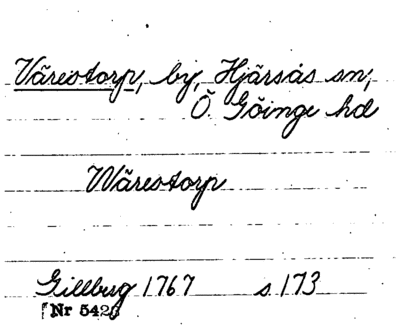 Väreotorp, by, Hjärsås sn,
Ö. Göinge hd
Wäreotorp
Gillberg 1767 s 173
Nr 542